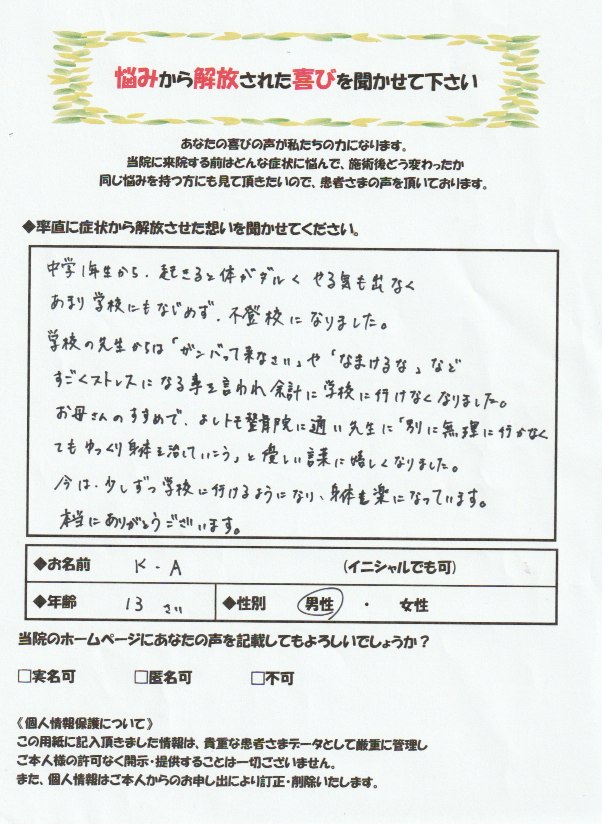 悩みから解放された喜びを聞かせて下さい
あなたの喜びの声が私たちの力になります。
当院に来院する前はどんな症状に悩んで、施術後どう変わったか
同じ悩みを持つ方にも見て頂きたいので、患者さまの声を頂いております。
◆率直に症状から解放させた想いを聞かせてください。
中学1年生から、起きると体がダルく やる気も出なく
あまり学校にもなじめず、不登校になりました。
学校の先生からは「ガンバって来なさい」や「なまけるな」など
すごくストレスになる事を言われ余計に学校に行けなくなりました。
お母さんのすすめで、よしトモ整骨院に通い先生に「別に無理に行かなく
てもゆっくり身体を治していこう」と優しい言葉に嬉しくなりました。
今は、少しずつ学校に行けるようになり、身体も楽になっています。
本当にありがとうございます。
◆お名前 K・A (イニシャルでも可)
◆年齢 13 さい ◆性別 男性 ・ 女性
当院のホームページにあなたの声を記載してもよろしいでしょうか？
□実名可 □匿名可 □不可
《個人情報保護について》
この用紙に記入頂きました情報は、貴重な患者さまデータとして厳重に管理し
ご本人様の許可なく開示・提供することは一切ございません。
また、個人情報はご本人からのお申し出により訂正・削除いたします。